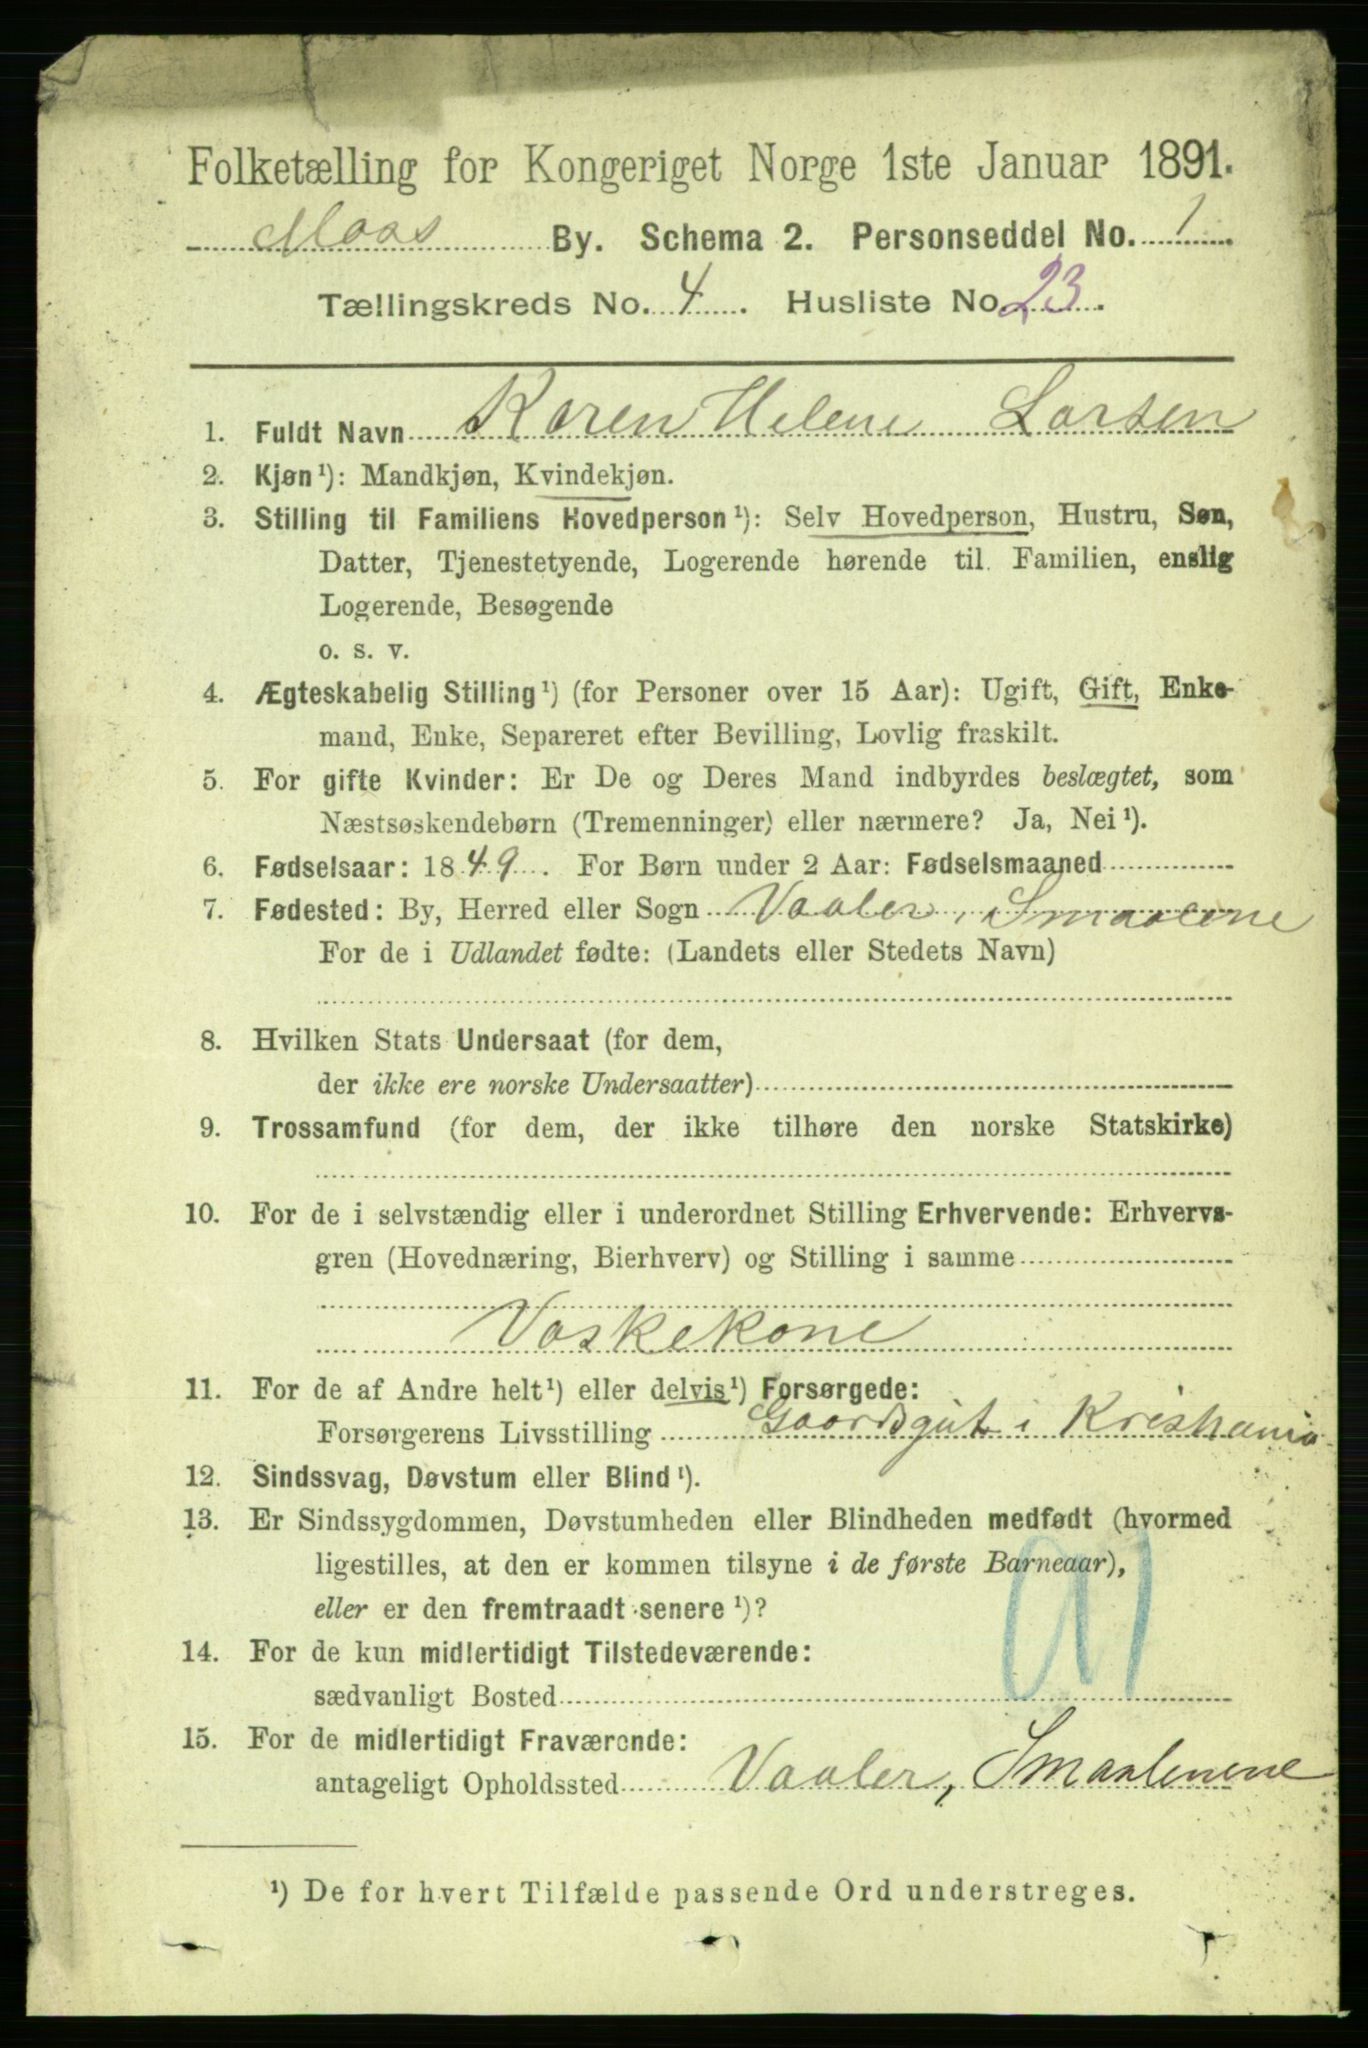 Folketælling for Kongeriget Norge 1ste Januar 1891.
Moss By. Schema 2. Personseddel No. 1
Tællingskreds No. 4. Husliste No 23.
1. Fuldt Navn Karen Helene Larsen
2. Kjøn¹): Mandkjøn, Kvindekjøn.
3. Stilling til Familiens Hovedperson¹): Selv Hovedperson, Hustru, Søn,
Datter, Tjenestetyende, Logerende hørende til Familien, enslig
Logerende, Besøgende
o. s. v.
4. Ægteskabelig Stilling¹) (for Personer over 15 Aar): Ugift, Gift, Enke-
mand, Enke, Separeret efter Bevilling, Lovlig fraskilt.
5. For gifte Kvinder: Er De og Deres Mand indbyrdes beslægtet, som
Næstsøskendebørn (Tremenninger) eller nærmere? Ja, Nei¹).
6. Fødselsaar: 1849. For Børn under 2 Aar: Fødselsmaaned
7. Fødested: By, Herred eller Sogn Vaaler, Smaalene
For de i Udlandet fødte: (Landets eller Stedets Navn)
8. Hvilken Stats Undersaat (for dem,
der ikke ere norske Undersaatter)
9. Trossamfund (for dem, der ikke tilhøre den norske Statskirke)
10. For de i selvstændig eller i underordnet Stilling Erhvervende: Erhvervs-
gren (Hovednæring, Bierhverv) og Stilling i samme
Vaskekone
11. For de af Andre helt¹) eller delvis¹) Forsørgede:
Forsørgerens Livsstilling Gaardsgut i Kristiania
12. Sindssvag, Døvstum eller Blind¹).
13. Er Sindssygdommen, Døvstumheden eller Blindheden medfødt (hvormed
ligestilles, at den er kommen tilsyne i de første Barneaar),
eller er den fremtraadt senere¹)?
14. For de kun midlertidigt Tilstedeværende:
sædvanligt Bosted
15. For de midlertidigt Fraværende:
antageligt Opholdssted Vaaler, Smaalenene
¹) De for hvert Tilfælde passende Ord understreges.